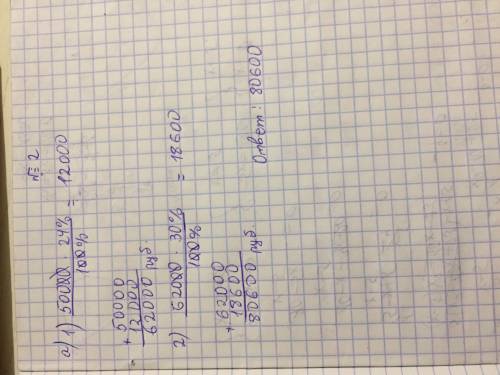 № 2
а) 1) 50000 · 24% / 100% = 12000
+ 50000
12000
62000 руб
2) 62000 · 30% / 100% = 18600
+ 62000
18600
80600 руб.
Ответ: 80600